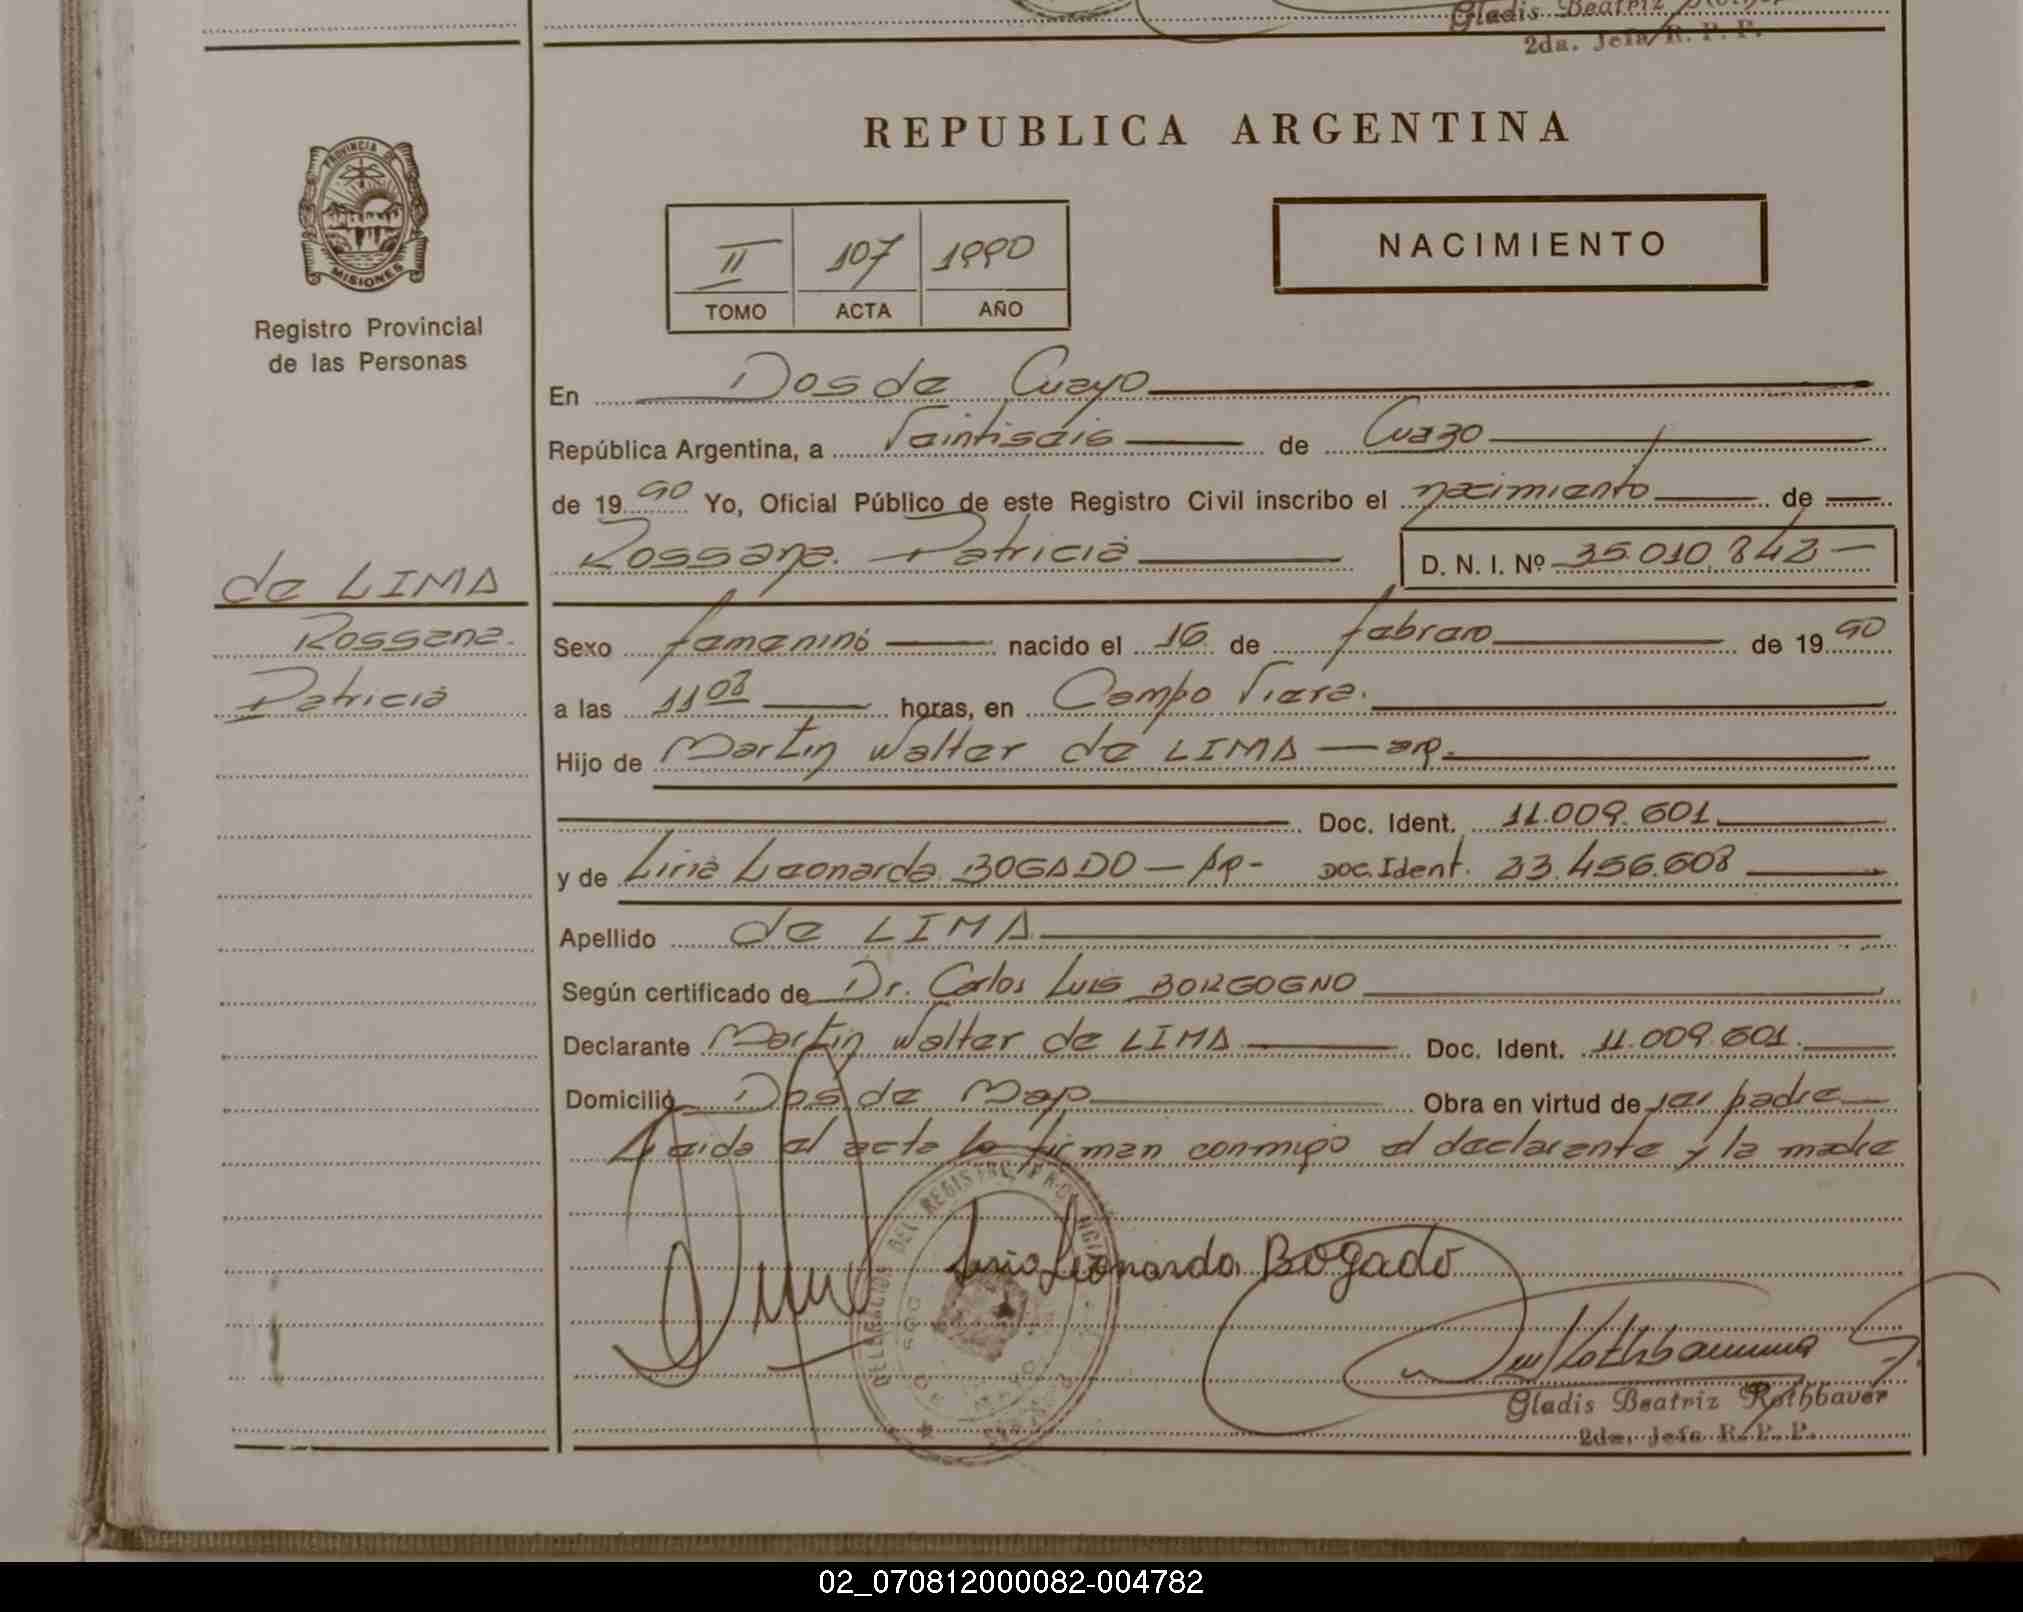 Gladis Beatriz
2da. Jefa R. P. P.
REPUBLICA ARGENTINA
PROVINCIA DE
MISIONES
Registro Provincial
de las Personas
II 107 1990
TOMO ACTA AÑO
NACIMIENTO
En Dos de Mayo
República Argentina, a Veintiseis de Marzo
de 1990 Yo, Oficial Público de este Registro Civil inscribo el nacimiento de
Rossana Patricia D. N. I. Nº 35.010.842
de LIMA
Rossana
Patricia
Sexo femenino nacido el 16 de febrero de 1990
a las 11 08 horas, en Campo Viera.
Hijo de Martin Walter de LIMA — arg.
Doc. Ident. 11.009.601
y de Liria Leonarda BOGADO — Ar - Doc. Ident. 23.456.608
Apellido de LIMA
Según certificado de Dr. Carlos Luis BORGOGNO
Declarante Martin Walter de LIMA Doc. Ident. 11.009.601.
Domicilio Dos de Mayo Obra en virtud de ser padre
Leida el acta la firman conmigo el declarante y la madre
Liria Leonarda Bogado
Gladis Beatriz Rothbauer
2da. Jefa R. P. P.
02_070812000082-004782